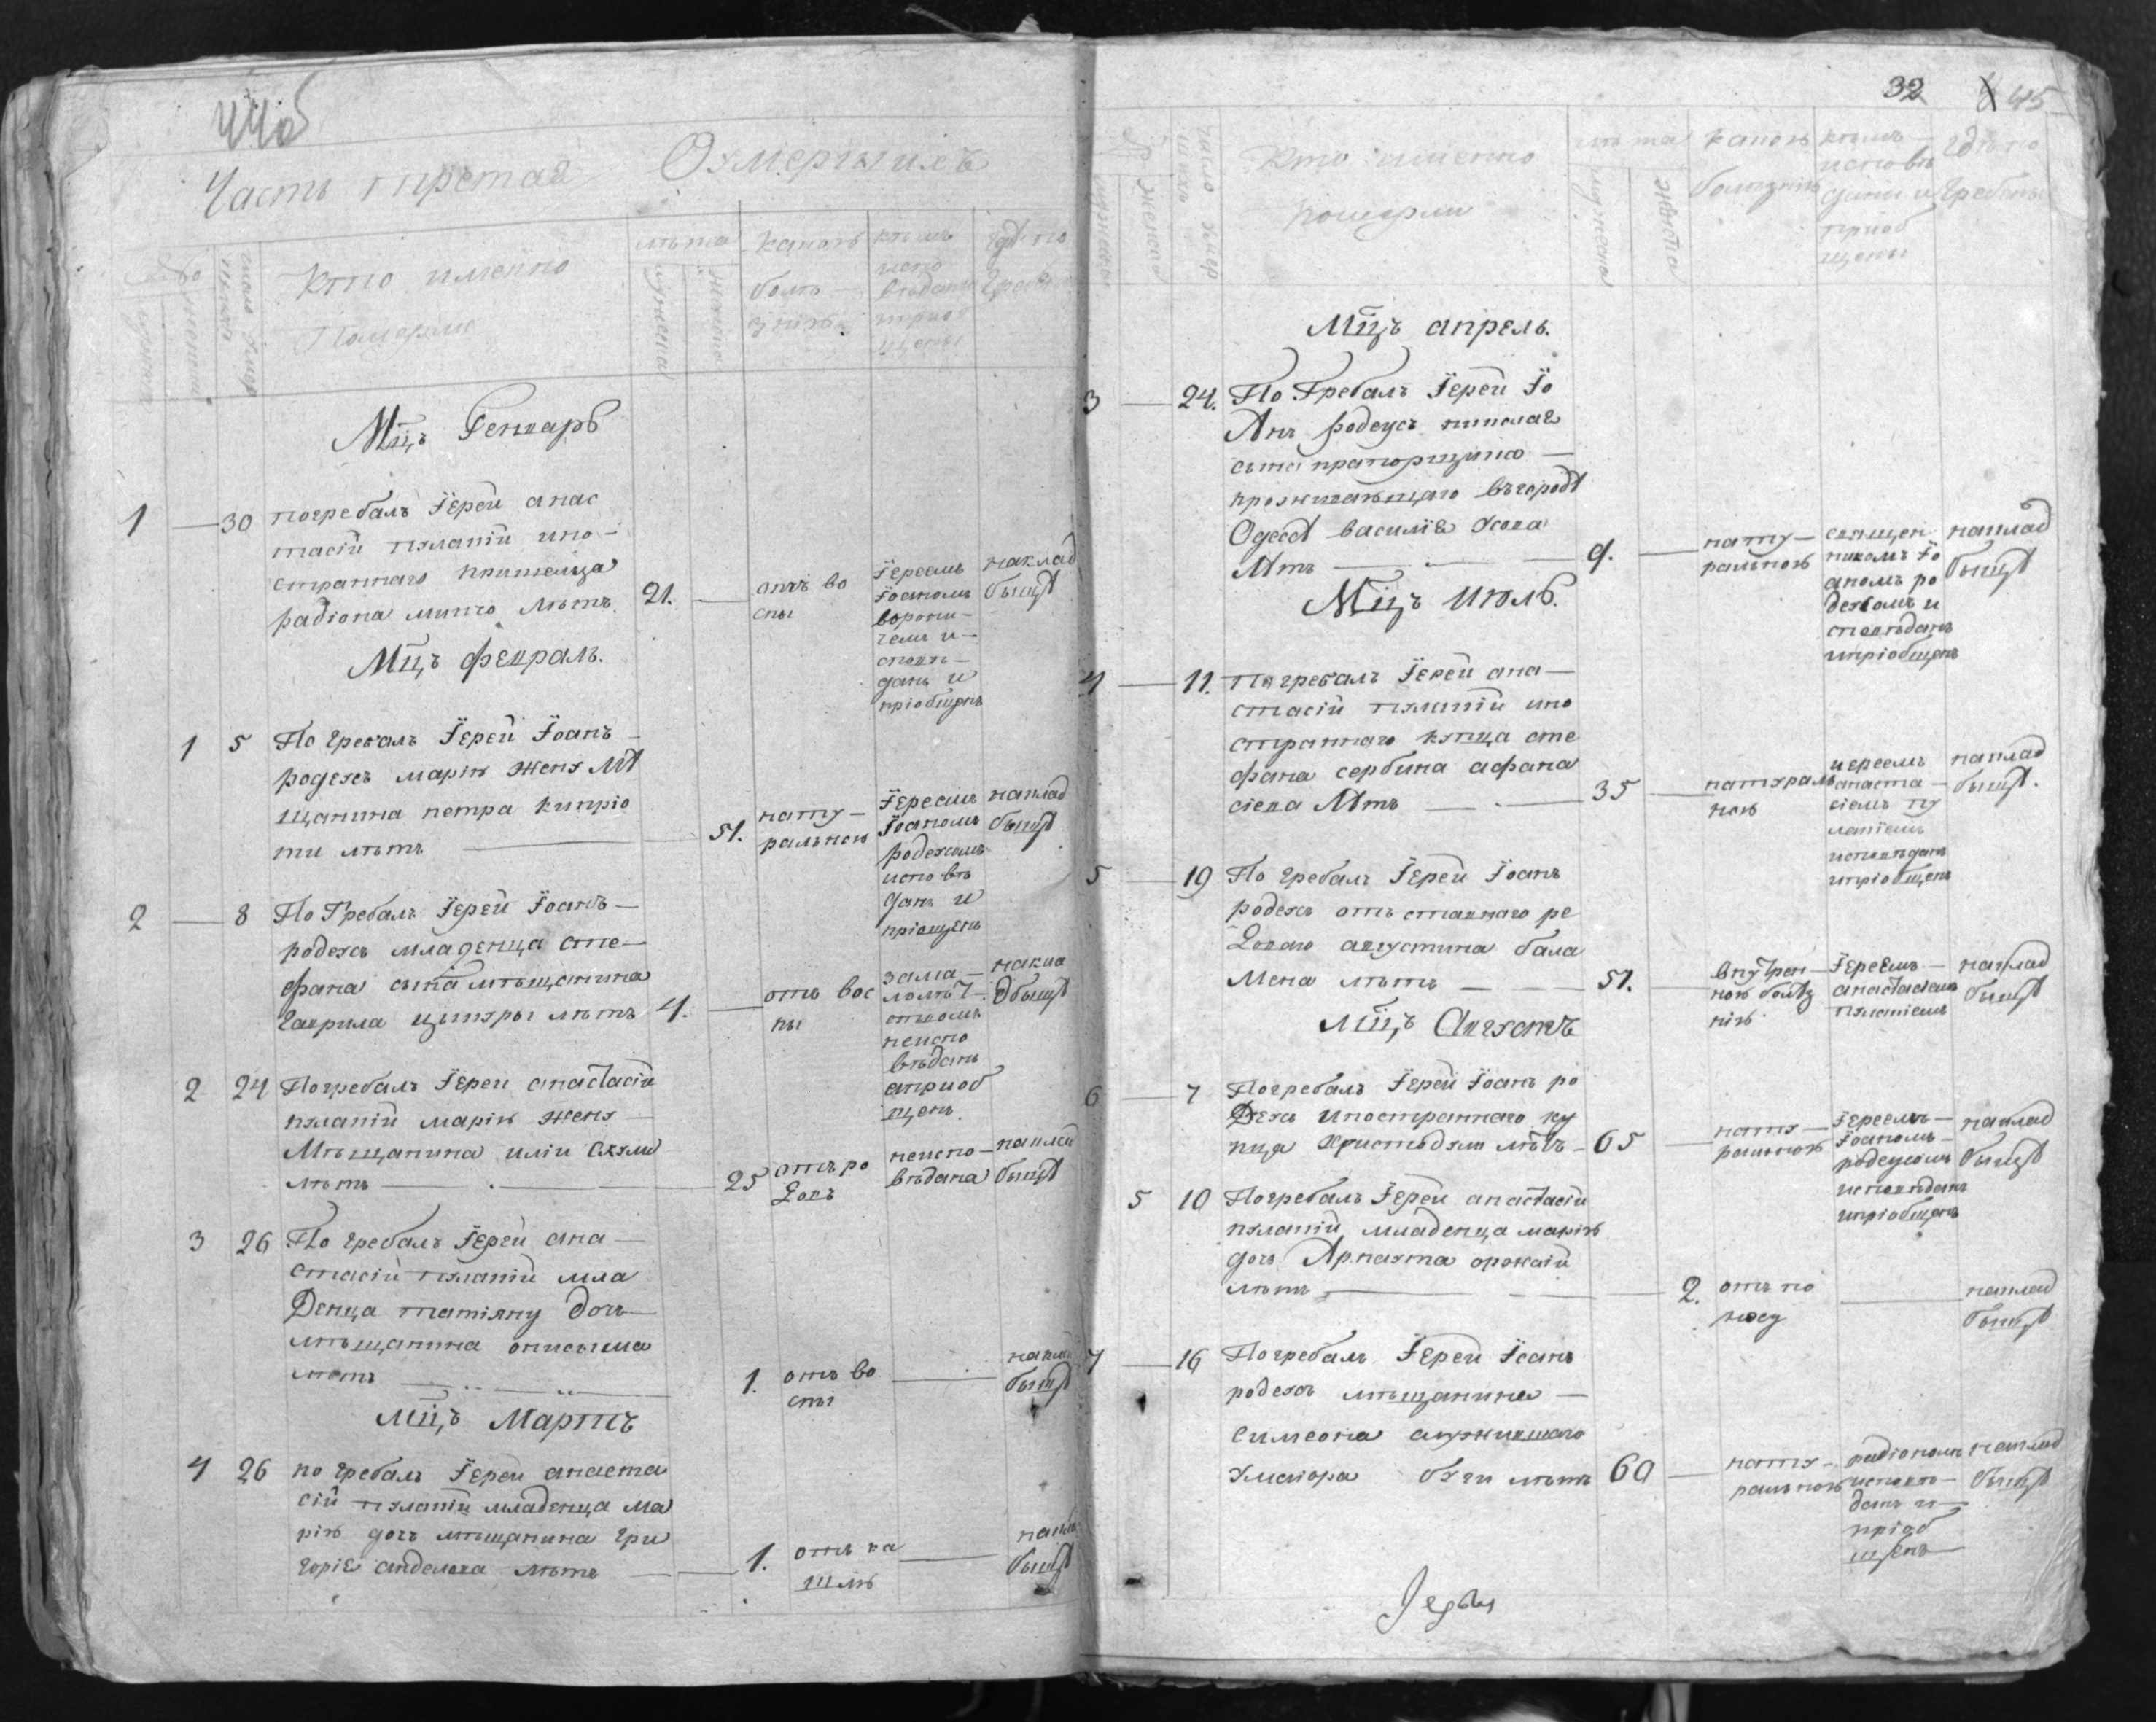 44об
Часть третая Оумершихъ
Кто именно
Померли
лѣта
какою
болѣ
знию
кѣмъ
испо
вѣдани
приоб
щены
гдѣ по
греб
Мцъ Генварь
1 — 30 погребалъ Іерей анас
тасій пулатій ино-
страннаго
радіона лѣтъ 21. — отъ во
спы
Іереемъ
Іоаномъ
испове-
данъ и
пріобщенъ
наклад
бищѣ
Мцъ февраль.
1 5 По гребалъ Іерей Іоанъ
родеусъ марію жену мѣ
щанина петра кипріо
ти лѣтъ — 51. нату-
ральною
Іереемъ
Іоаномъ
родеусомъ
испо вѣ
данъ и
пріощенъ
наклад
бищѣ
2 — 8 По Гребалъ Іерей Іоанъ —
родеусъ младенца сте-
фана сына мѣщанина
гаврила лѣтъ 4. — отъ вос
пы
зама-
лолѣт-
ствомъ
неиспо
вѣданъ
априоб
щенъ
накла
дбищѣ
2 24 Погребалъ Іереи анастасій
пулатій марію жену —
Мѣщанина иліи
лѣтъ — 25 отъ ро
довъ
неиспо-
вѣдана
наклад
бищѣ
3 26 По гребалъ Іерей ана-
стасій пулатій мла
денца татіяну дочь
мѣщанина
лѣтъ — 1. отъ во
спы
накла
бищѣ
Мцъ Мартъ
4 26 по гребалъ Іереи анаста
сій пулатій младенца ма
рію дочь мѣщанина гри
горіе лѣтъ — 1. отъ ка
шлю
накла
бищѣ
32 45
Кто именно
померли
лѣта
какою
болѣзнию
кѣмъ
исповѣ
дани и
приоб
щены
гдѣ по
гребены
Мцъ апрель.
3 — 24. По Гребалъ Іерей Іо
Анъ родеусъ николая
сына прапорщика —
проживающаго въ городѣ
Одессѣ василіе
лѣтъ — 9. — нату-
ральною
священ
никомъ Іо
аномъ ро
деусомъ и
споведанъ
ипріобщенъ
наклад
бищѣ
Мцъ июль.
4 — 11. Погребалъ Іерей ана-
стасій пулатій ино
страннаго купца сте
фана сербина афана
сіева лѣтъ — 35 — натураль
ною
иереемъ
анаста-
сіемъ пу
латіемъ
исповѣданъ
ипріобщенъ
наклад
бищѣ.
5 — 19 По гребалъ Іерей Іоанъ
родеусъ отъ ставнаго ре
доваго августина бала
мена лѣтъ — 51. внутрен-
ною болѣз
нію
Іереемъ —
анастасіемъ
пулатіемъ
наклад
бищѣ
Мцъ Августъ
6 — 7 Погребалъ Іерей Іоанъ ро
деусъ иностраннаго ку
пца лѣтъ — 65 — нату-
ральною
Іереемъ —
Іоаномъ —
родеусомъ
исповѣданъ
ипріобщенъ
наклад
бищѣ
5 10 Погребалъ Іереи анастасій
пулатій младенца марію
дочь
лѣтъ — 2. отъ по
носу
наклад
бищѣ
7 — 16 Погребалъ Іерей Іоанъ
родеусъ мѣщанина —
симеона служившаго
умаіора лѣтъ 60 — нату-
ральною
радіономъ
исповѣ-
данъ и
пріоб
щенъ
наклад
бищѣ